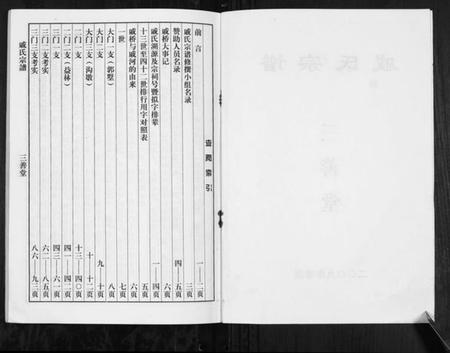 查阅索引
前言 一——二页
戚氏宗谱修撰小组名录 三页
赞助人员名录 四——五页
戚桥大事记 六页
戚氏溯源及宗祠号暨拟字排辈 一——四页
十三世至四十二世排行用字对照表 五页
戚桥与戚河的由来 六页
一世 七页
大门一支（郭墅） 八页
大门二支 九——十页
大门三支（沟敬） 十一——十二页
二门一支 十三——四〇页
二门二支（益林） 四一——四二页
三门一支 四三——六一页
三门二支考实 六二——八五页
三门三支考实 八六——九三页
戚氏宗谱
三善堂
戚氏宗谱
三善堂
二〇〇九年